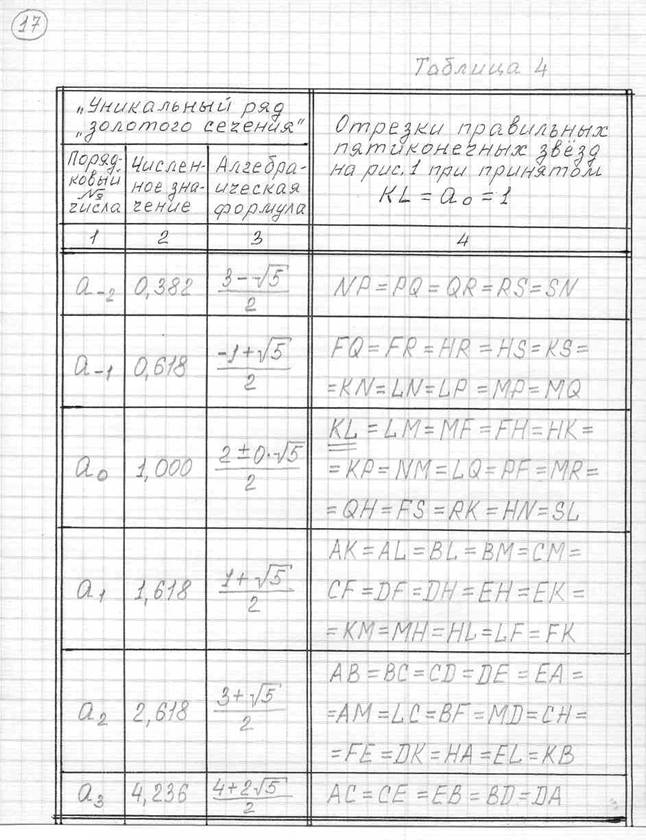 17
Таблица 4
„Уникальный ряд
„золотого сечения"
Отрезки правильных
пятиконечных звёзд
на рис. 1 при принятом
KL = a₀ = 1
Поряд-
ковый
№
числа
Числен-
ное зна-
чение
Алгебра-
ическая
формула
1 2 3 4
a₋₂ 0,382 (3-√5)/2 NP = PQ = QR = RS = SN
a₋₁ 0,618 (-1+√5)/2 FQ = FR = HR = HS = KS =
= KN = LN = LP = MP = MQ
a₀ 1,000 (2±0·√5)/2 KL = LM = MF = FH = HK =
= KP = NM = LQ = PF = MR =
= QH = FS = RK = HN = SL
a₁ 1,618 (1+√5)/2 AK = AL = BL = BM = CM =
CF = DF = DH = EH = EK =
= KM = MH = HL = LF = FK
a₂ 2,618 (3+√5)/2 AB = BC = CD = DE = EA =
= AM = LC = BF = MD = CH =
= FE = DK = HA = EL = KB
a₃ 4,236 (4+2√5)/2 AC = CE = EB = BD = DA